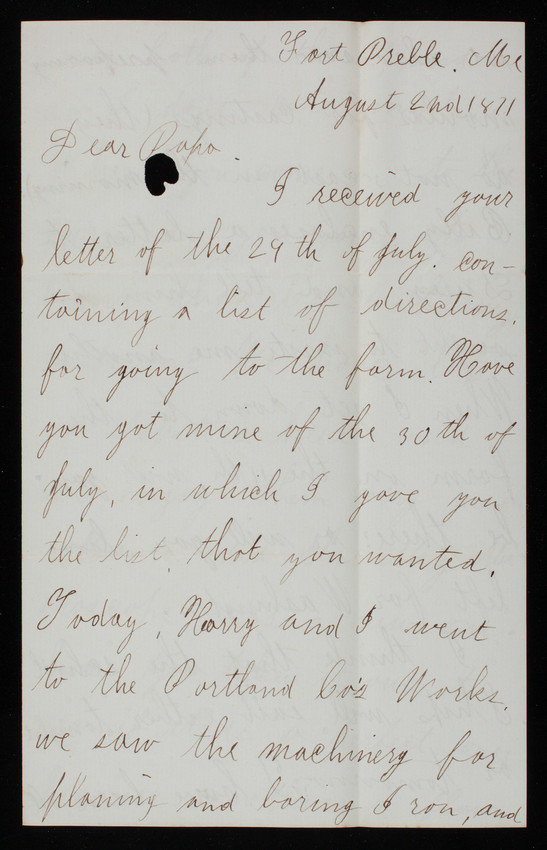 Fort Preble. Me
August 2nd 1871
Dear Papa.
I received your
letter of the 29th of July. con-
taining a list of directions,
for going to the farm. Have
you got mine of the 30th of
July, in which I gave you
the list, that you wanted.
Today, Harry and I went
to the Portland Co's Works,
we saw the machinery for
planing and boring Iron, and